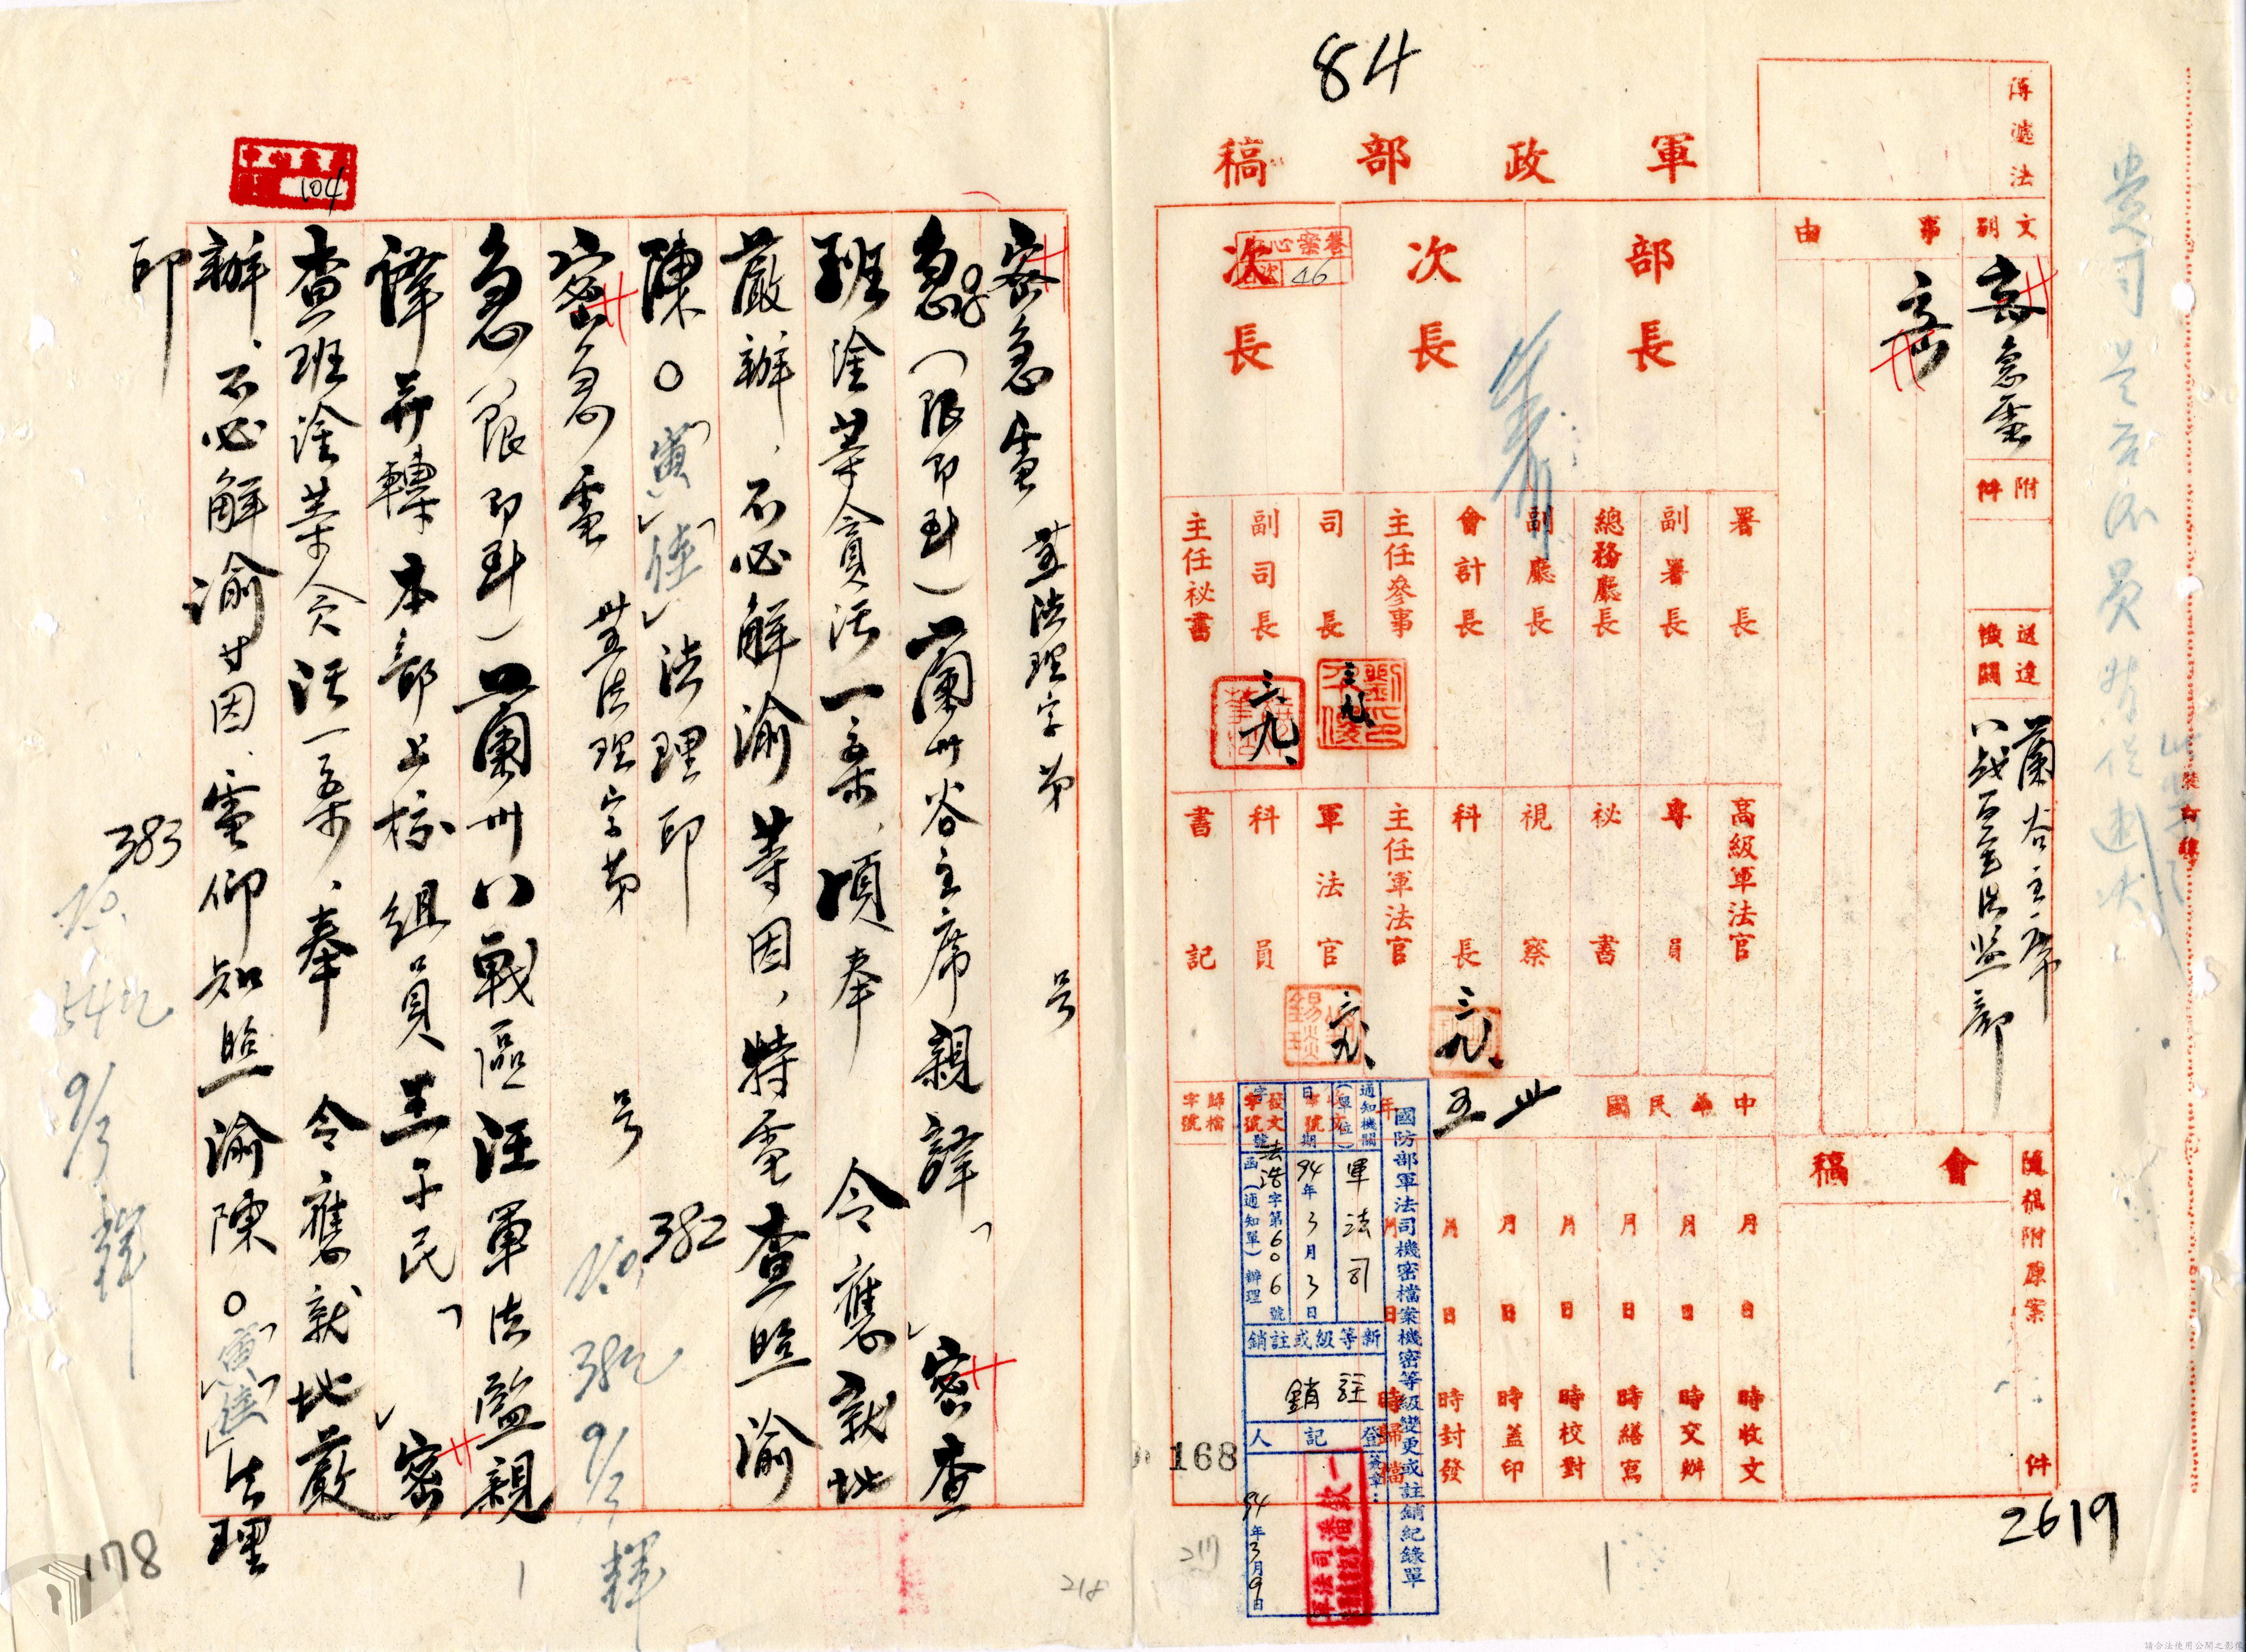 84
軍政部稿
擬辦法
文別
密急電
事由
密
附件
送達機關
蘭谷主席
八戰區軍法監部
部長
次長
次長
46
署長
副署長
總務廳長
副廳長
會計長
主任參事
司長
副司長
主任秘書
三九、
三九、
高級軍法官
專員
秘書
視察
科長
主任軍法官
軍法官
科員
書記
三九、
三九、
中華民國卅五年
會稿
隨稿附原案件
月日時收文
月日時交辦
月日時繕寫
月日時校對
月日時蓋印
月日時封發
月日時歸檔
收文字號
發文字號
歸檔字號
裝訂線
國防部軍法司機密檔案機密等級變更或註銷紀錄單
通知機關(單位)
軍法司
日期
94年3月3日
法浩字第6066號
函(通知單)辦理
新等級或註銷
註銷
登記人
(簽章):
94年3月9日
168
2619
217
104
密急電 卅五法理字第 号
急。(限即到)蘭州谷主席親譯」密查
班淦等貪污一案,頃奉 令應就地
嚴辦,不必解渝等因,特電查照渝
陳○寅佳法理印
382
密急電 卅五法理字第 号
急(限即到)蘭州八戰區汪軍法監親
譯并轉本部上校組員王子民」密
查班淦等貪污一案,奉 令應就地嚴
辦、不必解渝等因、電仰知照渝陳○寅佳法理
印
383
9/3
178
218
請合法使用公開之影像